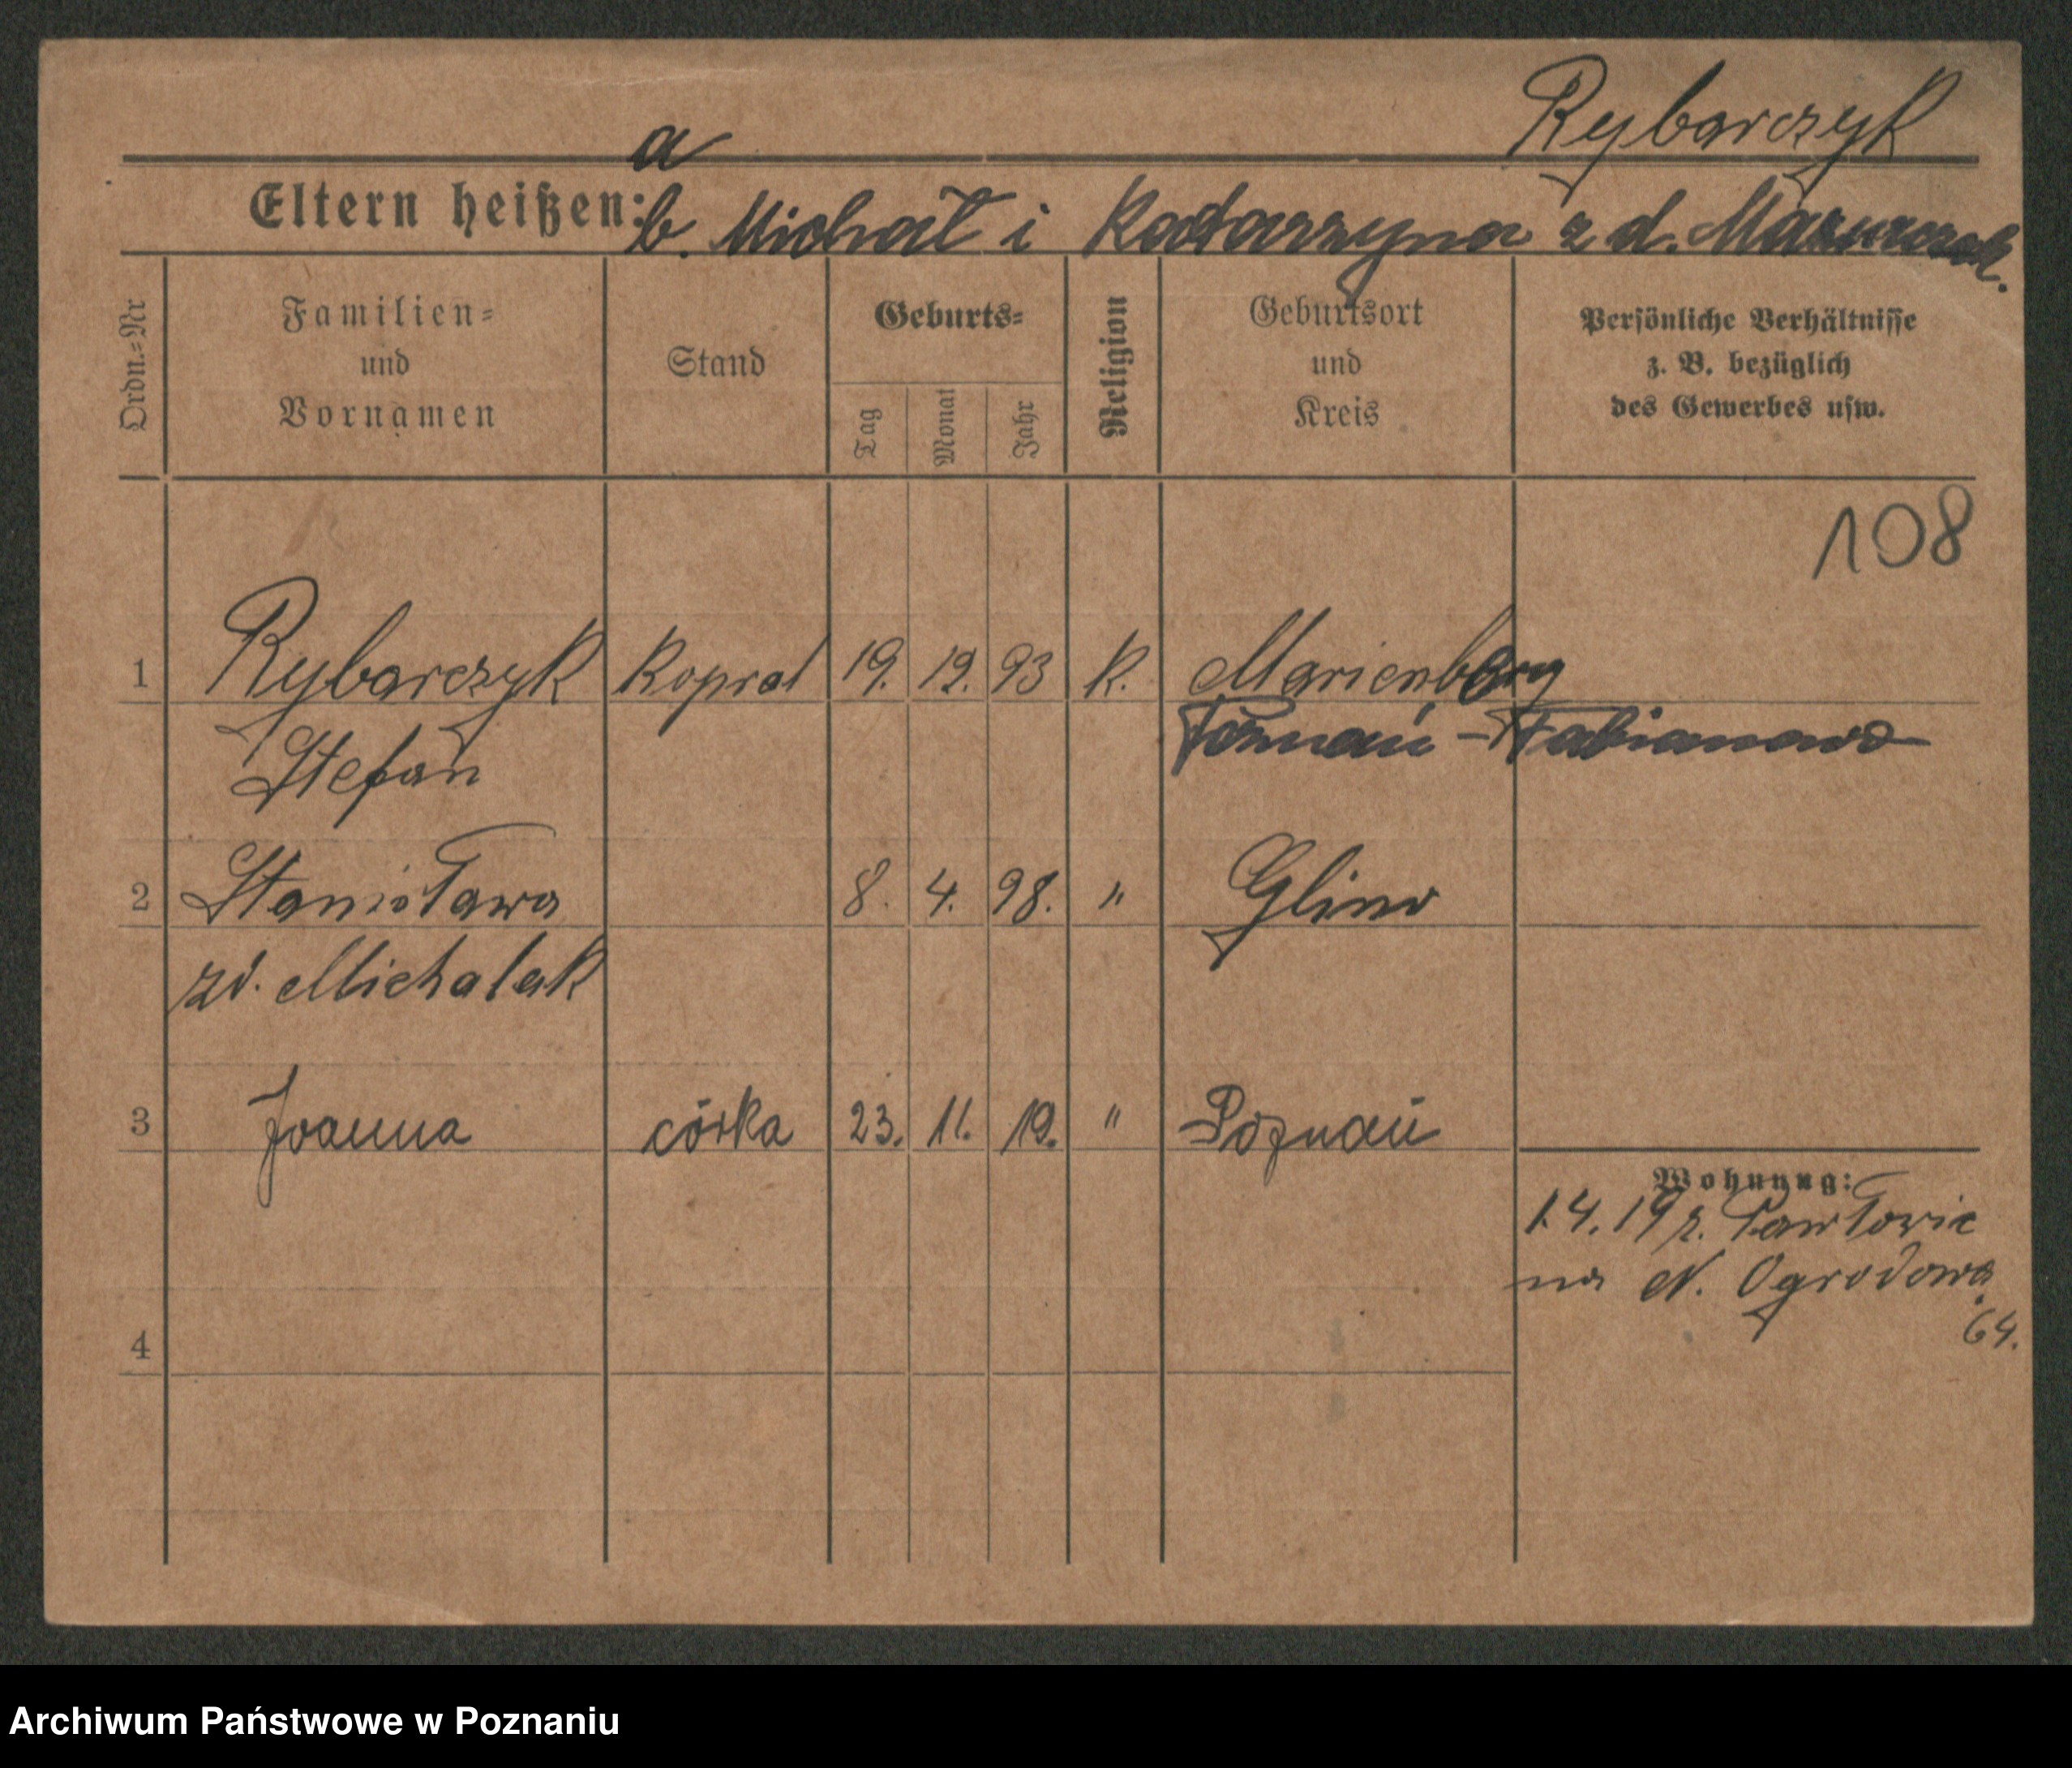 Rybarczyk
a
Eltern heißen: b. Michał i Katarzyna z d. Mazurczak.
Ordn.=Nr
Familien=
und
Vornamen
Stand
Geburts=
Tag
Monat
Jahr
Religion
Geburtsort
und
Kreis
Persönliche Verhältnisse
z. B. bezüglich
des Gewerbes usw.
108
1 Rybarczyk Kopral 19. 12. 93 K. Marienberg
Stefan Poznań - Fabianowo
2 Stanisława 8. 4. 98. " Glinno
zd. Michalak
3 Joanna córka 23. 11. 19. " Poznań
Wohnung:
1.4.19 r. Pawłowic
na N. Ogrodowa
64.
4
Archiwum Państwowe w Poznaniu